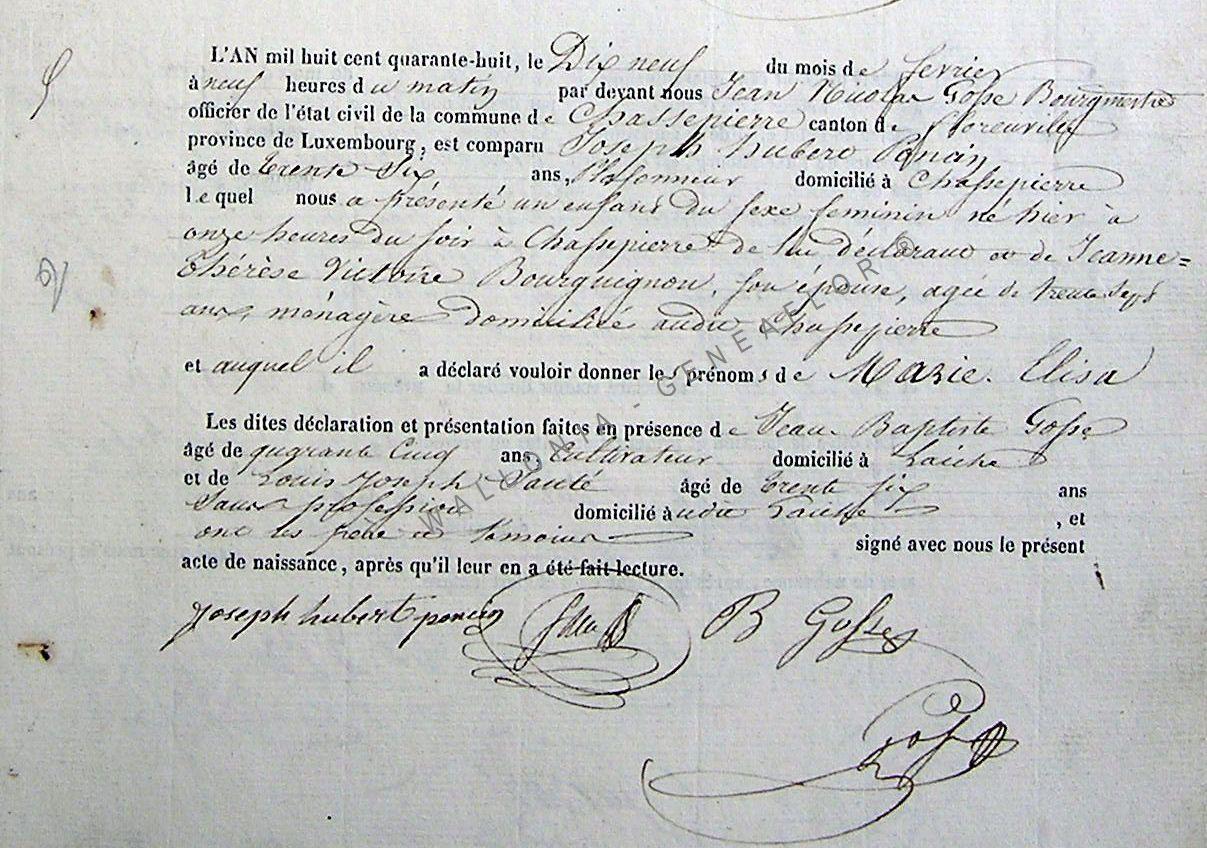 L'AN mil huit cent quarante-huit, le Dix neuf du mois de fevrier
à neuf heures du matin par devant nous Jean Nicolas Gosse Bourgmestre
officier de l'état civil de la commune de Chassepierre canton de florenville
province de Luxembourg, est comparu Joseph hubert Poncin
âgé de trente six ans, Plafonneur domicilié à Chassepierre
lequel nous a présenté un enfant du sexe feminin né hier à
onze heures du soir à Chassepierre de lui déclarant et de Jeanne=
Thérèse Victoire Bourguignon, son épouse, agée de trente sept
ans, ménagère domiciliée audit Chassepierre
et auquel il a déclaré vouloir donner les prénoms de Marie Elisa
Les dites déclaration et présentation faites en présence de Jean Baptiste Gosse
âgé de quarante cinq ans, Cultivateur domicilié à Laiche
et de Louis Joseph âgé de trente six ans
Sans profession domicilié audit Laiche, et
ont les père et témoins signé avec nous le présent
acte de naissance, après qu'il leur en a été fait lecture.
Joseph hubert poncin B Gosse
Gosse
WALLONIA - GENEALOR ®